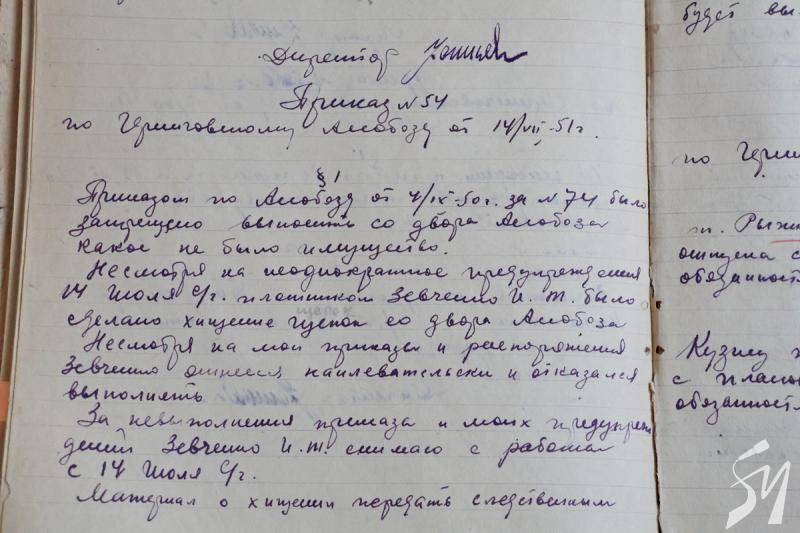 Директор
Приказ № 54
по Черниговскому Апобозу от 14/VII-51г.
§ 1
Приказом по Апобозу от 4/IX-50г. за № 74 было
запрещено выносить со двора Апобоза
какое не было имущество.
Несмотря на неоднократное предупреждения
14 Июля с/г. плотником Зевченко И. Т. было
сделано хищение щепок со двора Апобоза
Несмотря на мои приказы и распоряжения
Зевченко отнесся наплевательски и отказался
выполнять.
За невыполнения приказа и моих предупреж
дений Зевченко И. Т. снимаю с работы
с 14 Июля с/г.
Материал о хищении передать следственным
будет вы
по Черни
т. Рыж
отпуска с
обязанност
Кузину
с планов
обязанност